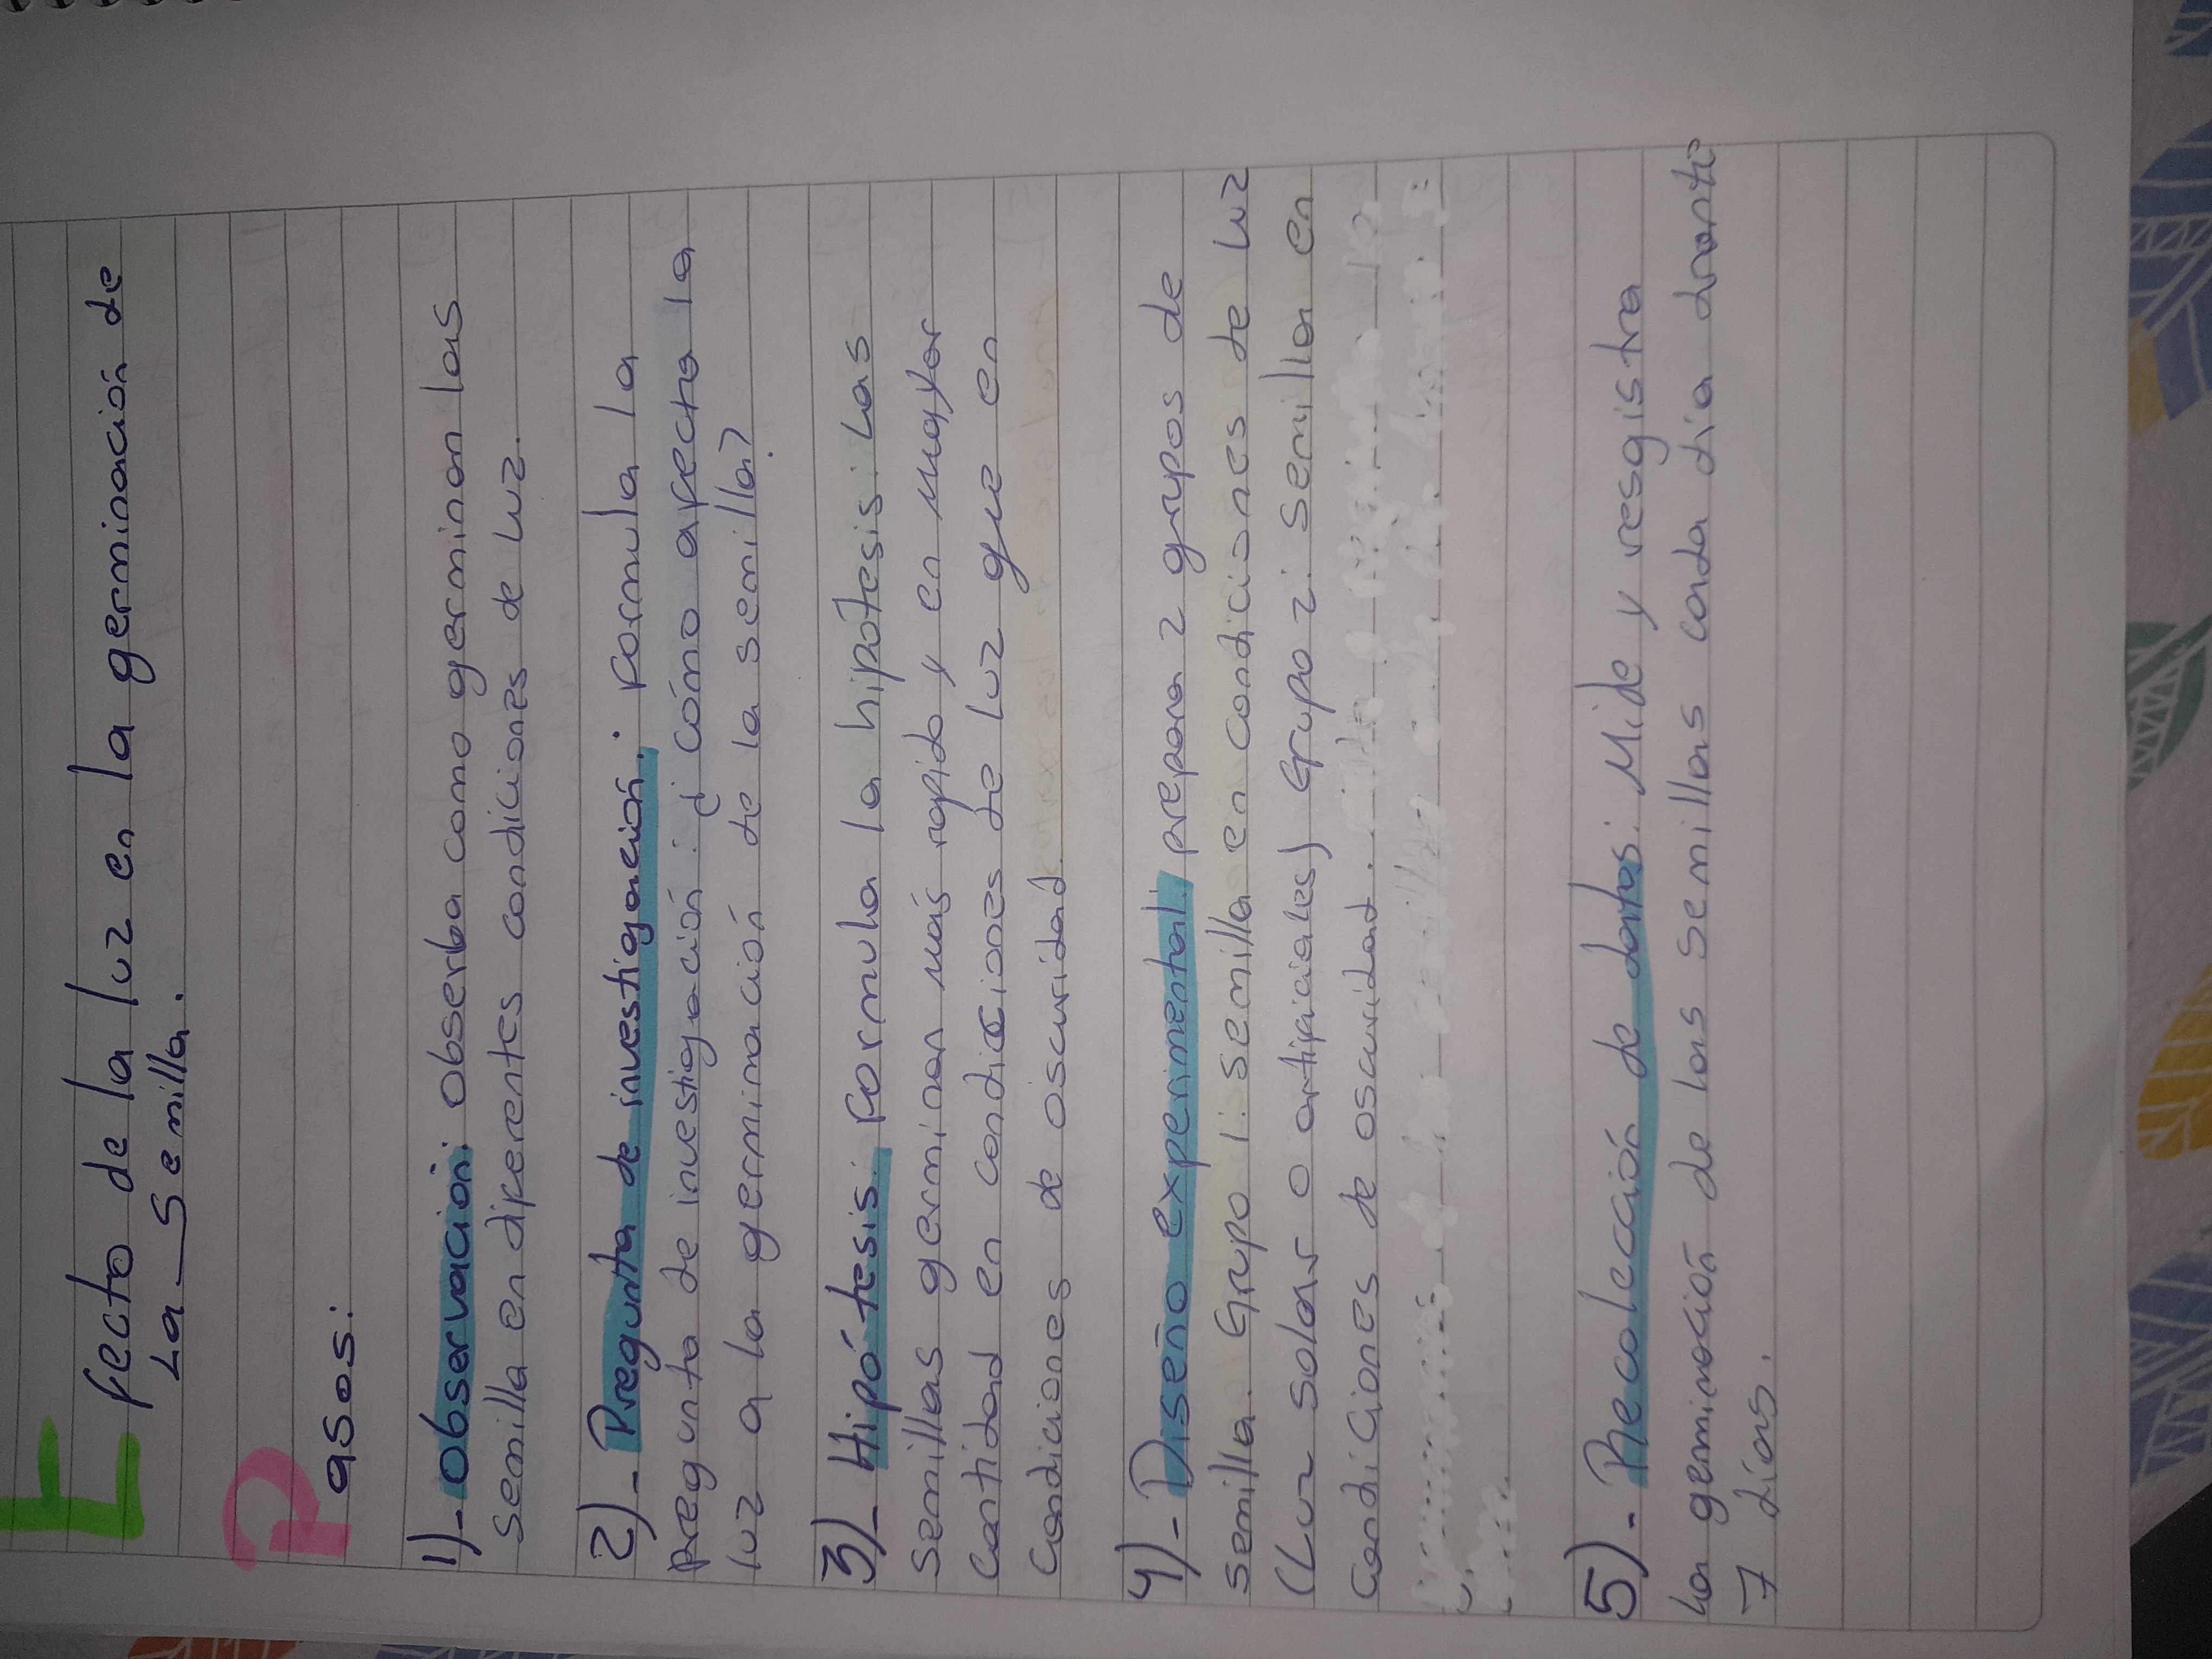 Efecto de la luz en la germinación de
La semilla.
Pasos:
1)- observación: obserba como germinan las
semilla en diferentes condiciones de luz.
2)- Pregunta de investigación: formula la
pregunta de investigación: ¿cómo afecta la
luz a la germinación de la semilla?
3)- Hipótesis: formula la hipótesis: Las
semillas germinan más rapido y en mayor
cantidad en condiciones de luz que en
condiciones de oscuridad.
4)- Diseño experimental: prepara 2 grupos de
semilla. Grupo 1: semilla en condiciones de luz
(Luz solar o artificiales) Grupo 2: semilla en
condiciones de oscuridad.
5)- Recolección de datos: Mide y resgistra
la germinación de las semillas cada día dronte
7 días.